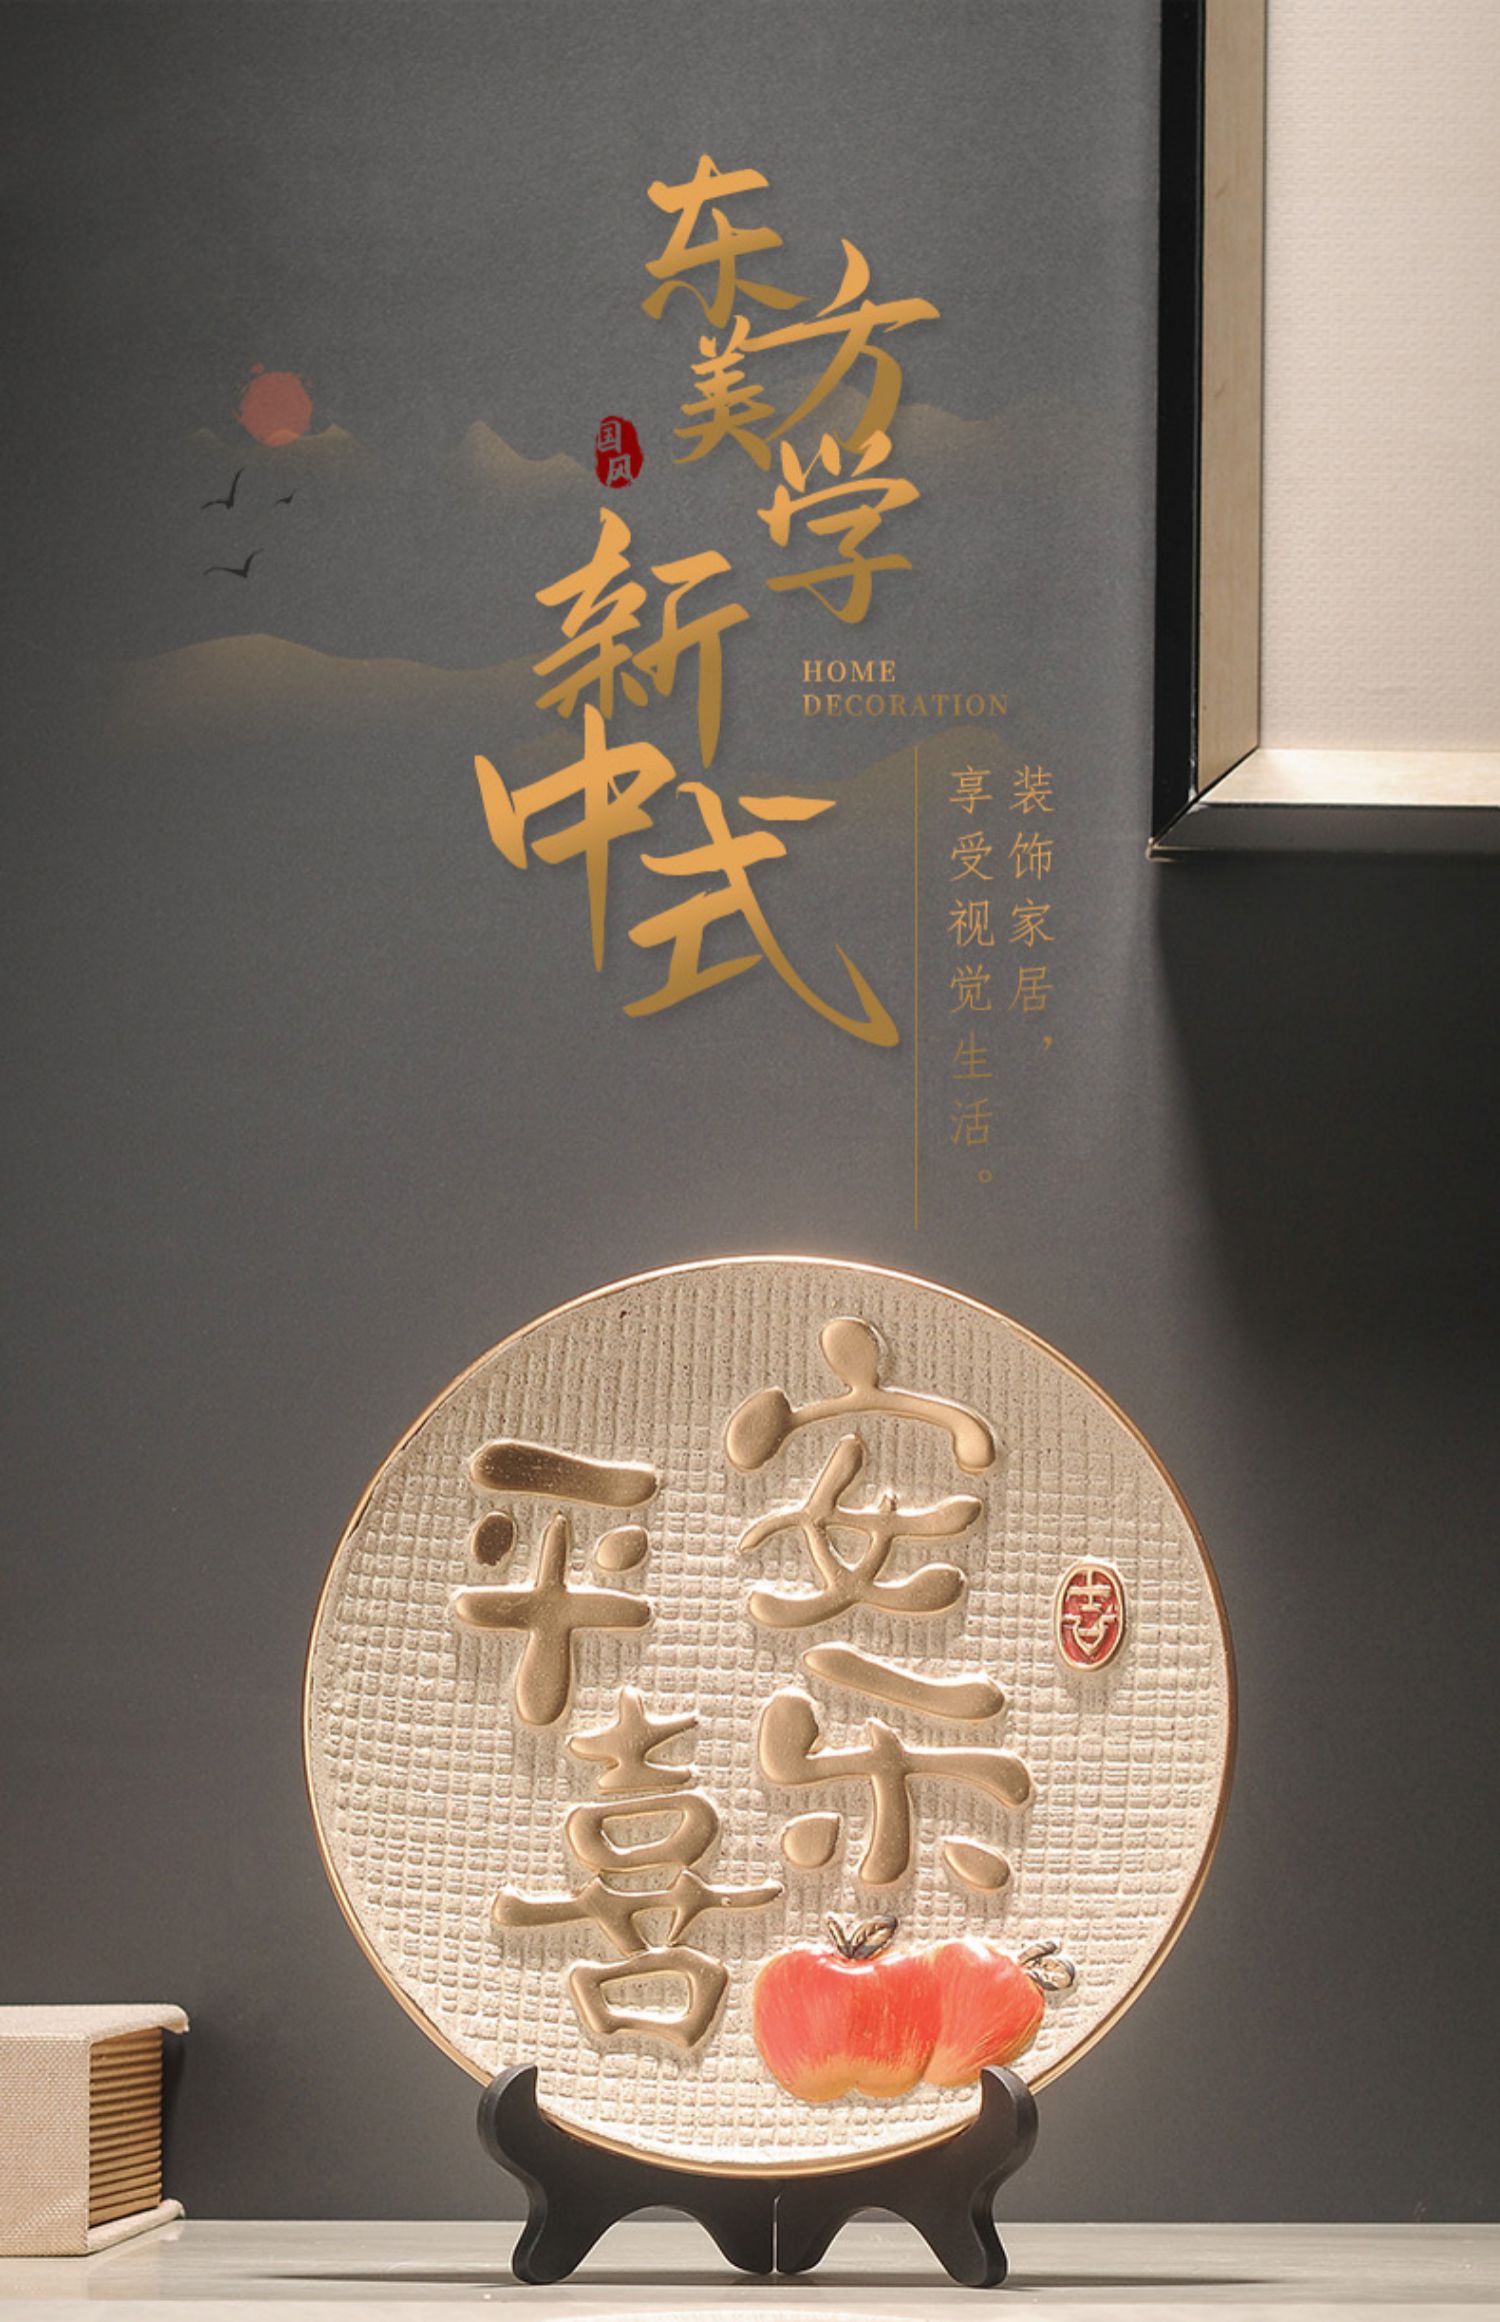 东方美学
国风
新中式
HOME
DECORATION
装饰家居，
享受视觉生活。
安乐
平喜